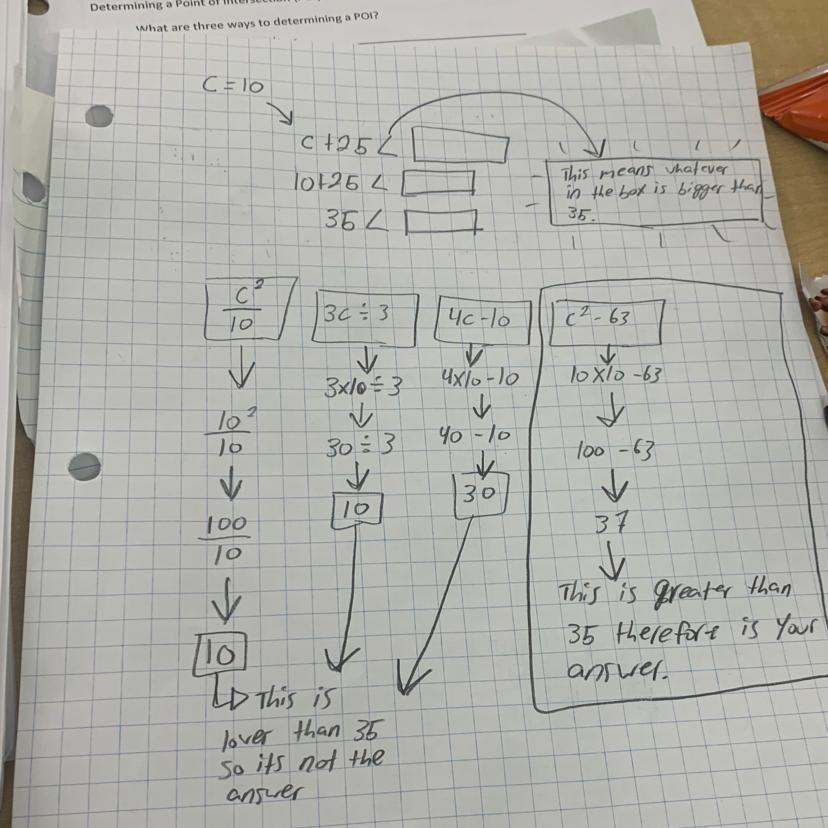 Determining a Point of Intersection
What are three ways to determining a POI?
C = 10
C + 25 <
10+25 <
35 <
This means whatever
in the box is bigger than
35.
C²/10
3C ÷ 3
4C - 10
C² - 63
10²/10
3×10 ÷ 3
4×10 - 10
10×10 - 63
100/10
30 ÷ 3
40 - 10
100 - 63
10
10
30
37
This is greater than
35 therefore is your
answer.
This is
lower than 35
so its not the
answer